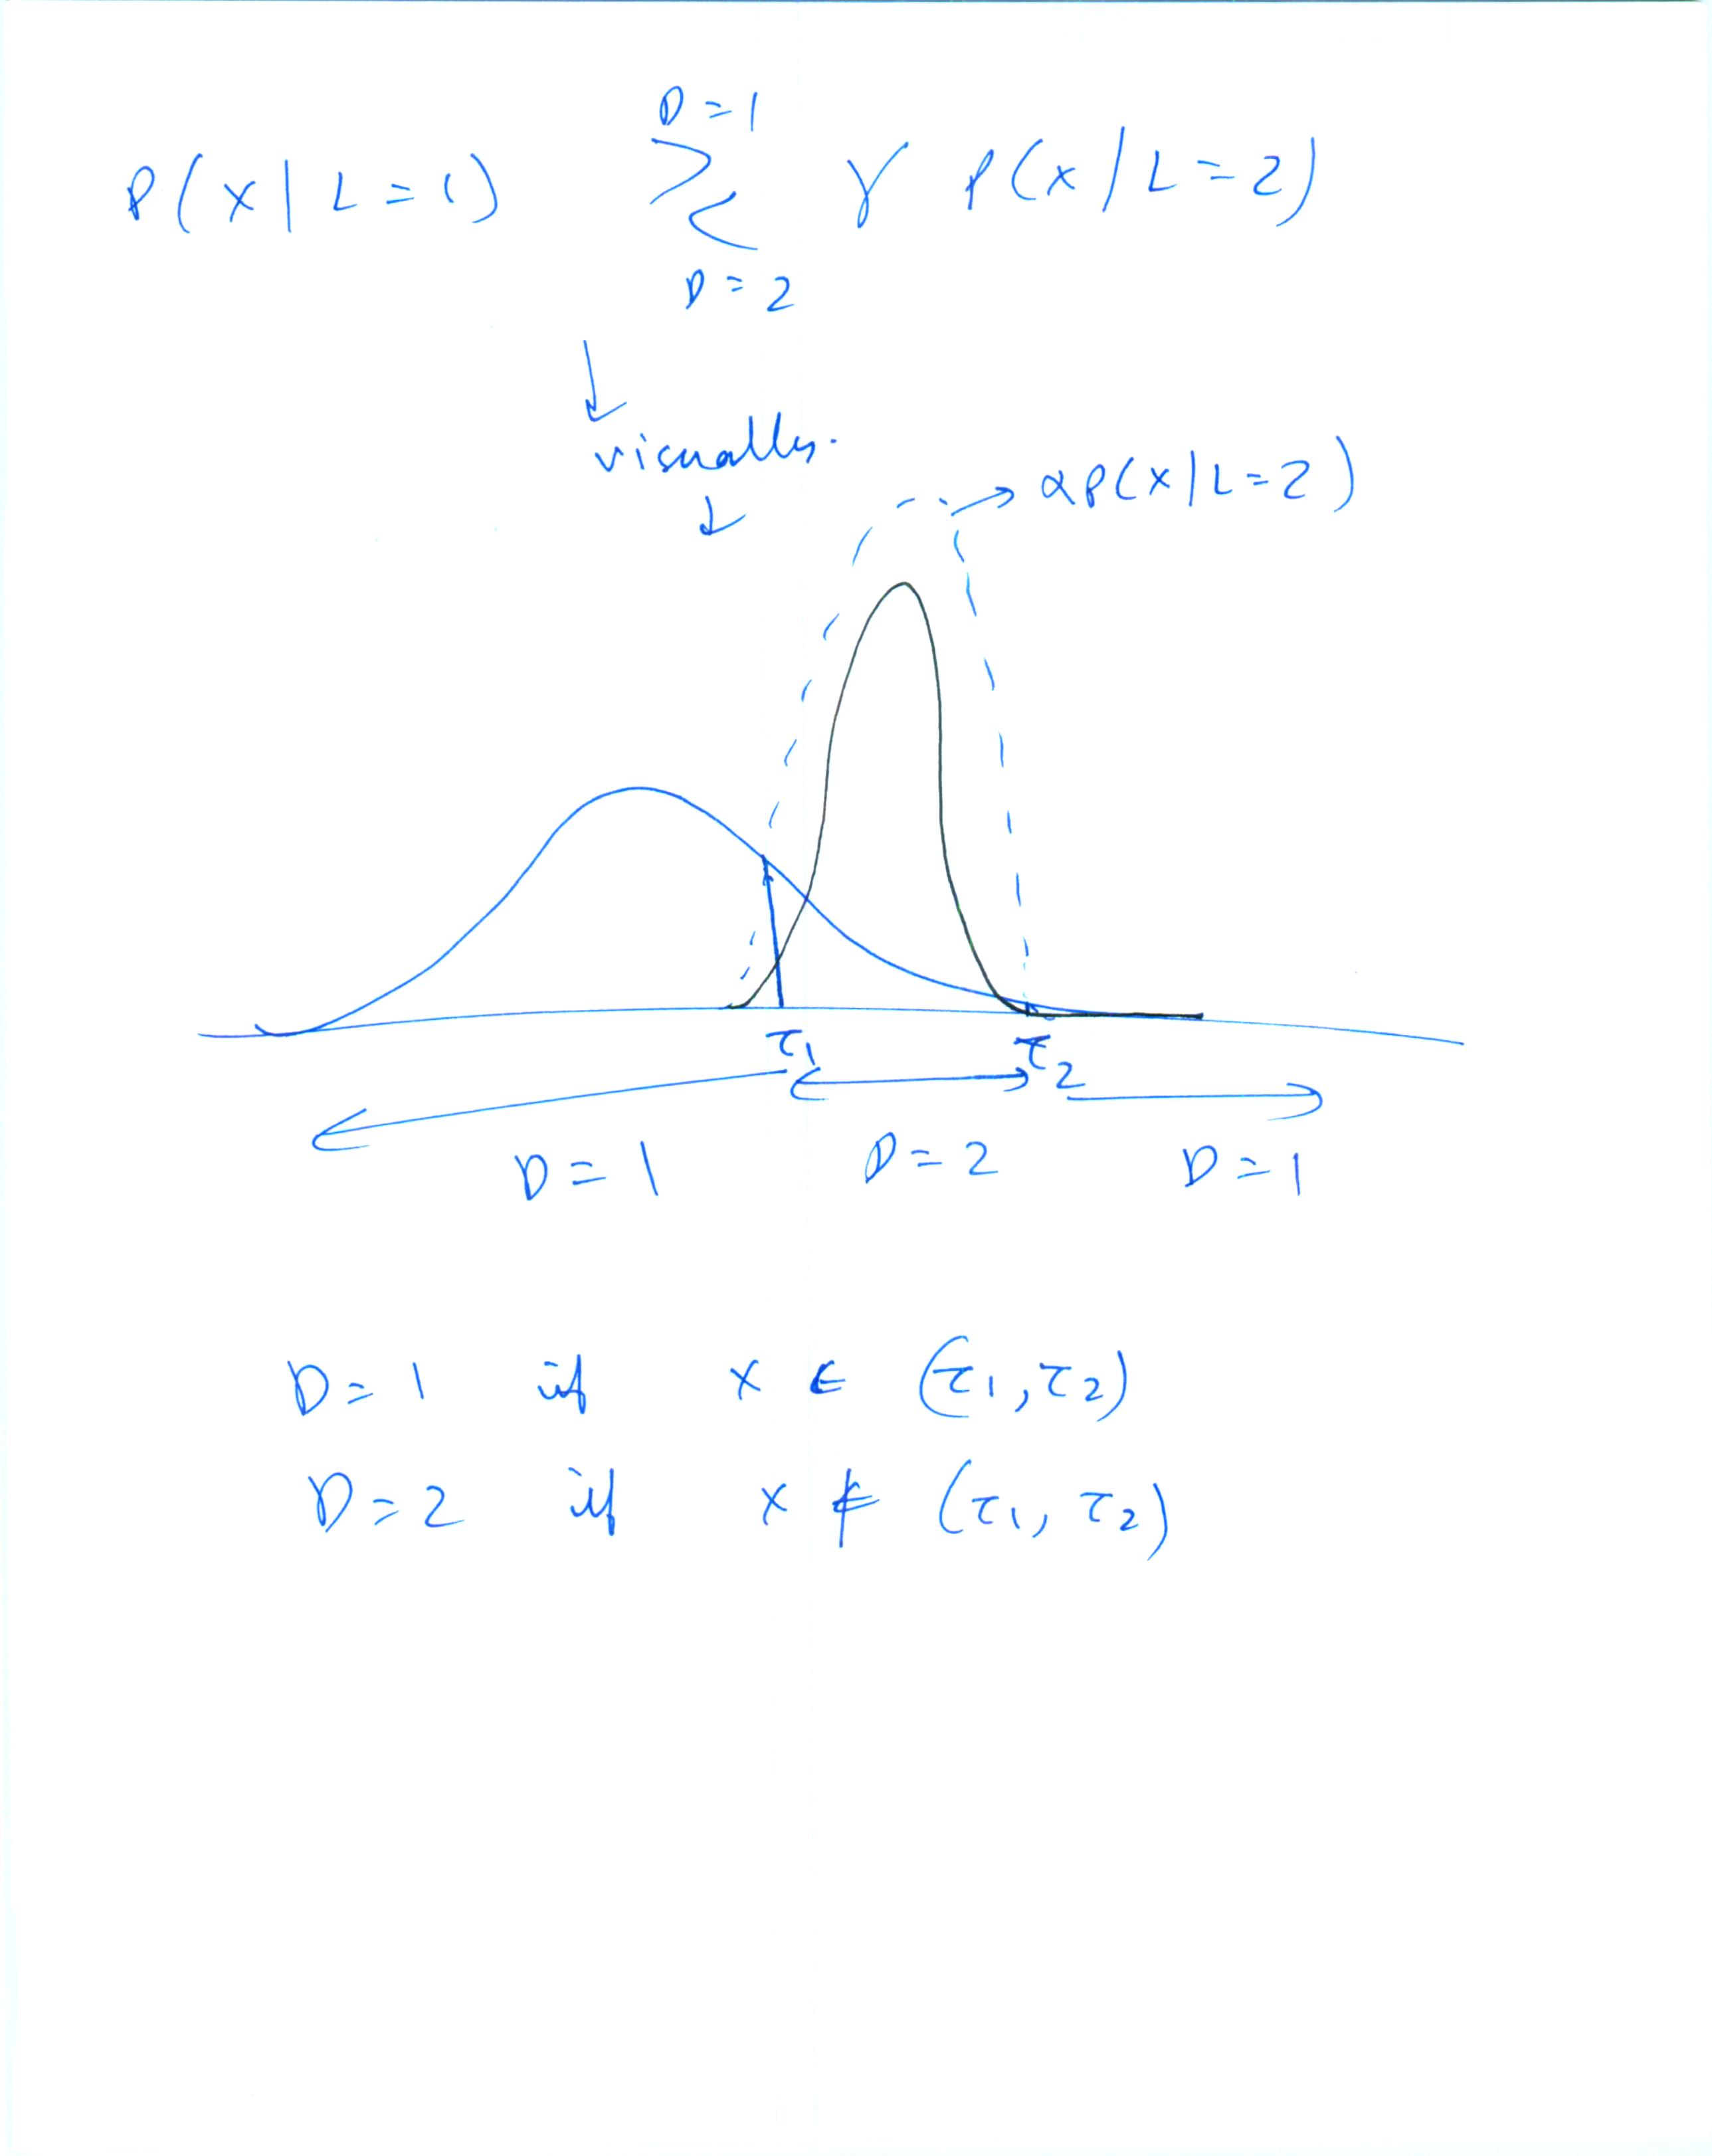 D=1
P(x|L=1) >< γ P(x|L=2)
D=2
↓
visually.
↓
→ αP(x|L=2)
τ1 τ2
D=1 D=2 D=1
D=1 if x ∈ (τ1,τ2)
D=2 if x ∉ (τ1, τ2)